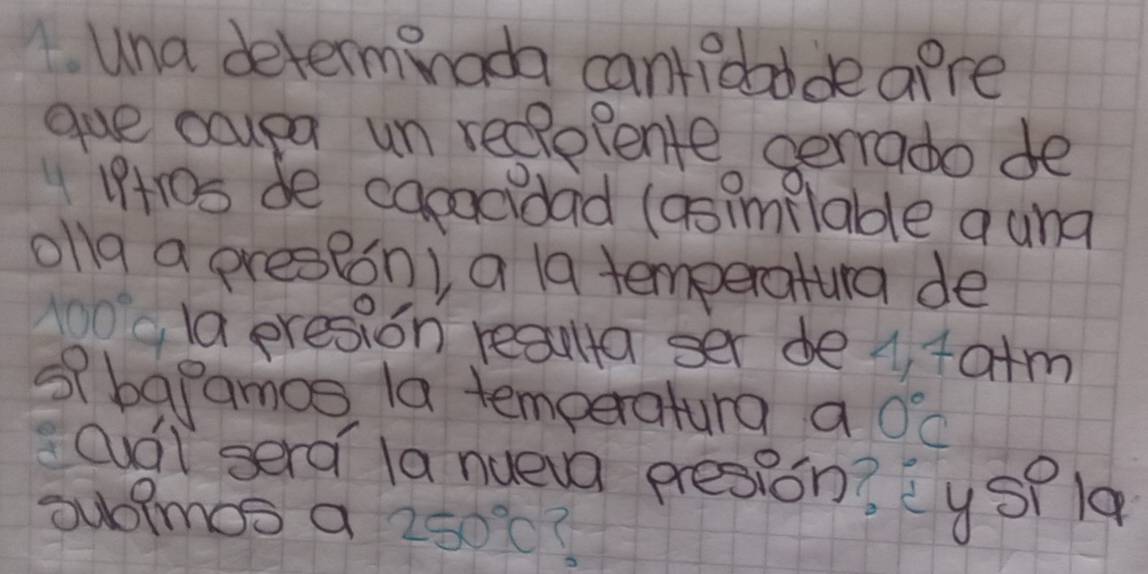 1. Una determinada cantidad de aire
que ocupa un recipiente cerrado de
4 litros de capacidad (asimilable a una
olla a presión), a la temperatura de
100°C, la presión resulta ser de 1,1 atm
si bajamos la temperatura a 0°C
¿Cuál será la nueva presión? ¿y si la
subimos a 250°C?